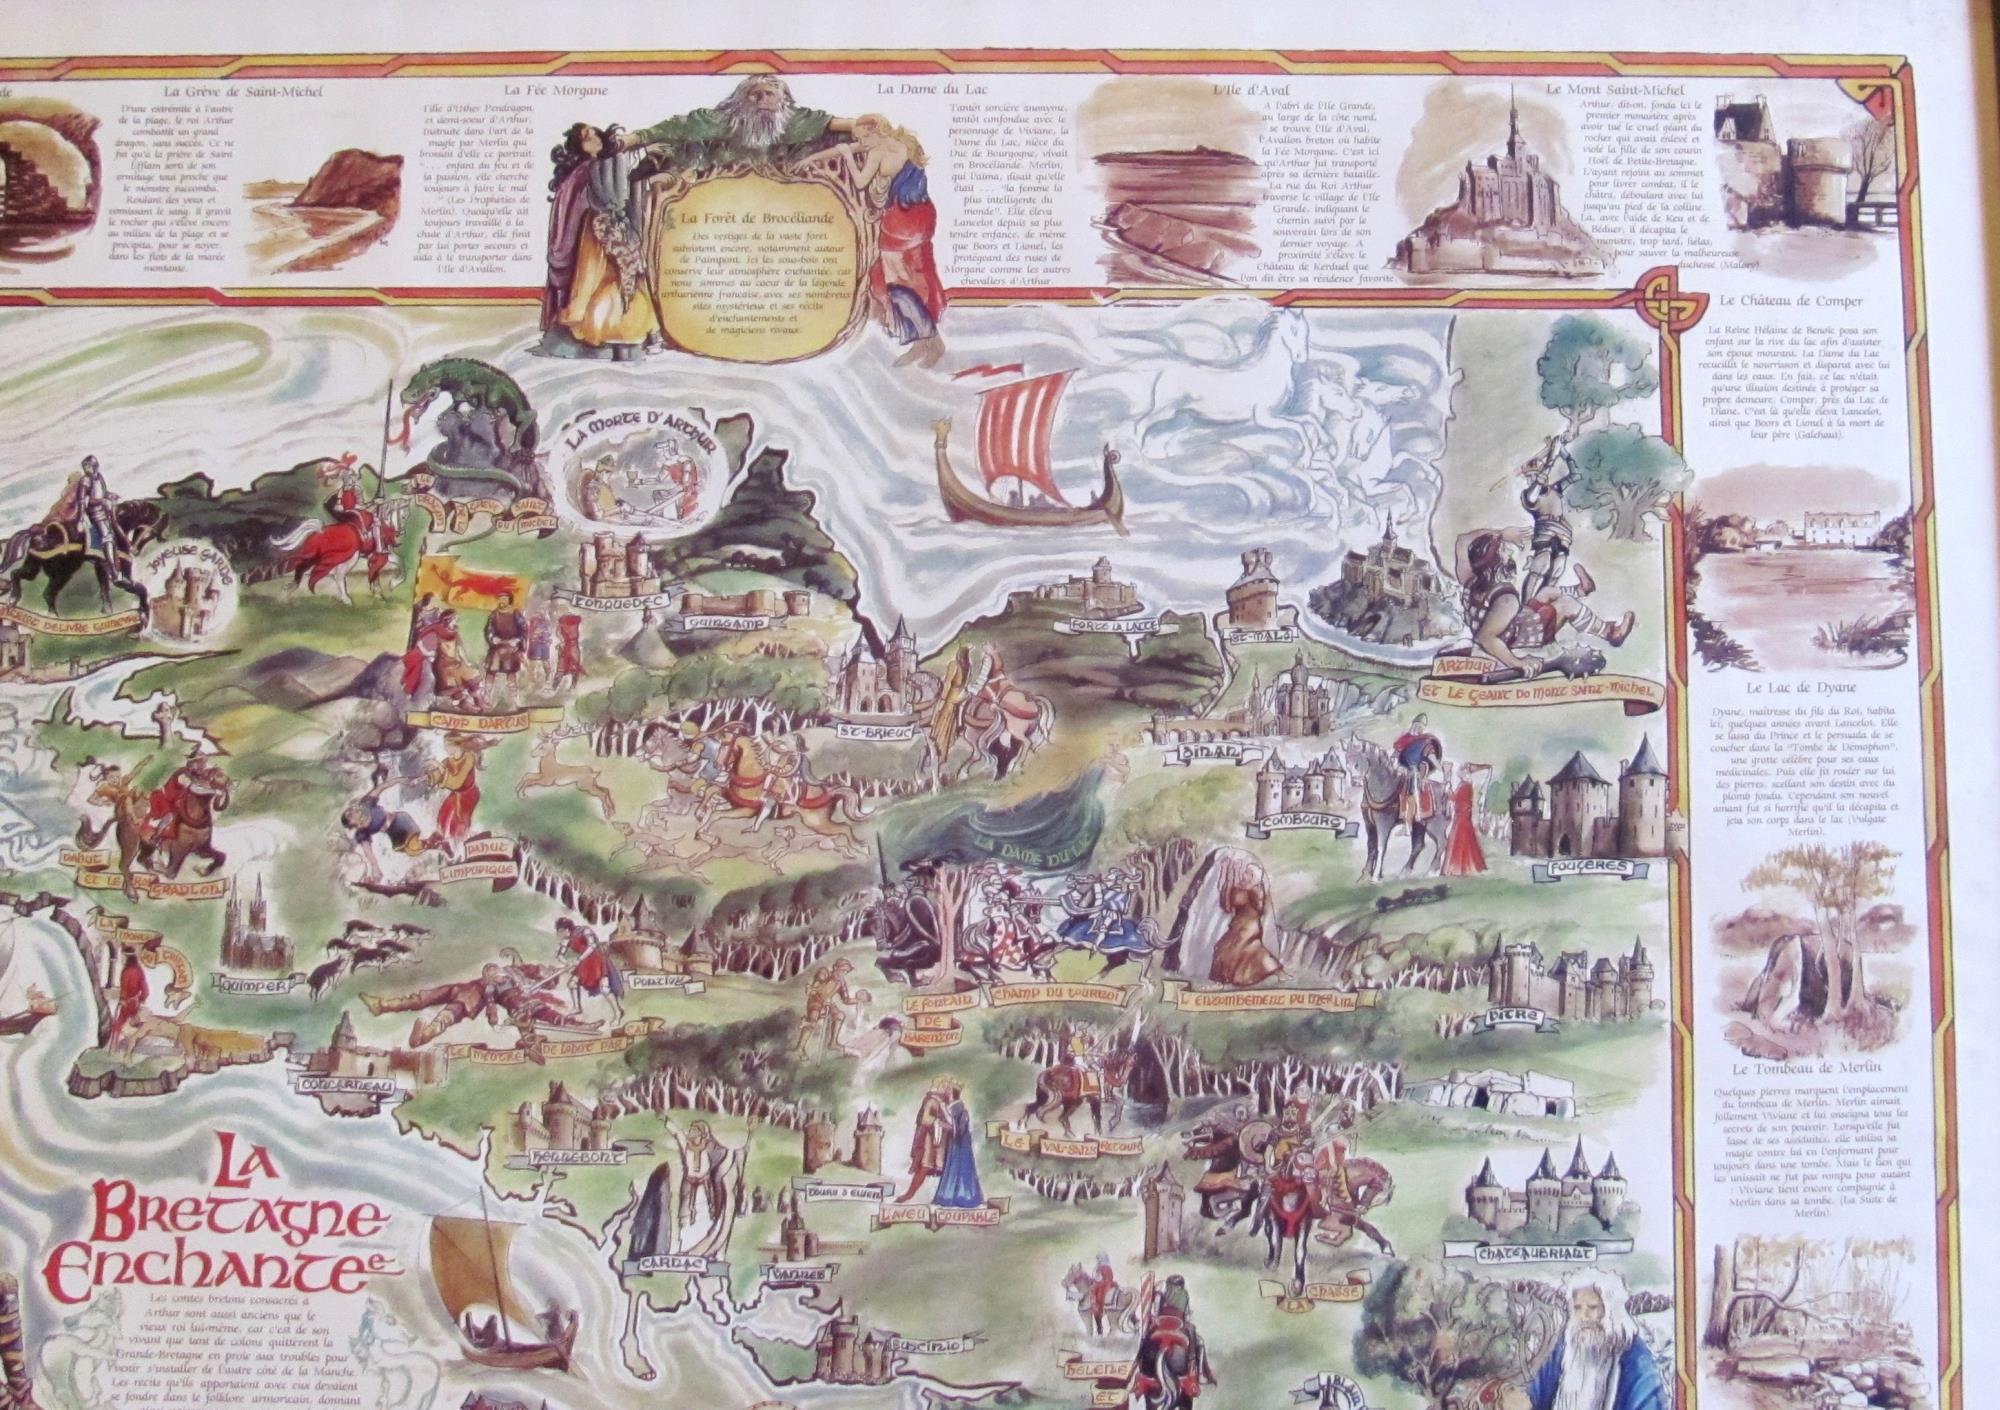 La Grève de Saint-Michel
D'une extrémité à l'autre
de la plage, le roi Arthur
combattit un grand
dragon, sans succès. Ce ne
fut qu'à la prière de Saint
Efflam sorti de son
ermitage tout proche que
le monstre succomba.
Roulant des yeux et
vomissant le sang, il gravit
le rocher qui s'élève encore
au milieu de la plage et se
précipita, pour se noyer,
dans les flots de la marée
montante.
La Fée Morgane
Fille d'Uther Pendragon,
et demi-soeur d'Arthur.
Instruite dans l'art de la
magie par Merlin qui
brossait d'elle ce portrait:
". . . enfant du feu et de
la passion, elle cherche
toujours à faire le mal
. . ." (Les Prophéties de
Merlin). Quoiqu'elle ait
toujours travaillé à la
chute d'Arthur, elle finit
par lui porter secours et
aida à le transporter dans
l'Ile d'Avallon.
La Forêt de Brocéliande
Des vestiges de la vaste forêt
subsistent encore, notamment autour
de Paimpont. Ici les sous-bois ont
conservé leur atmosphère enchantée, car
nous sommes au coeur de la légende
arthurienne française, avec ses nombreux
sites mystérieux et ses récits
d'enchantements et
de magiciens rivaux.
La Dame du Lac
Tantôt sorcière anonyme,
tantôt confondue avec le
personnage de Viviane, la
Dame du Lac, nièce du
Duc de Bourgogne, vivait
en Brocéliande. Merlin,
qui l'aima, disait qu'elle
était . . . "la femme la
plus intelligente du
monde". Elle éleva
Lancelot depuis sa plus
tendre enfance, de même
que Boors et Lionel, les
protégeant des ruses de
Morgane comme les autres
chevaliers d'Arthur.
L'Ile d'Aval
A l'abri de l'Ile Grande,
au large de la côte nord,
se trouve l'Ile d'Aval,
l'Avallon breton où habite
la Fée Morgane. C'est ici
qu'Arthur fut transporté
après sa dernière bataille.
La rue du Roi Arthur
traverse le village de l'Ile
Grande, indiquant le
chemin suivi par le
souverain lors de son
dernier voyage. A
proximité s'élève le
Château de Kerduel que
l'on dit être sa résidence favorite.
Le Mont Saint-Michel
Arthur, dit-on, fonda ici le
premier monastère après
avoir tué le cruel géant du
rocher qui avait enlevé et
violé la fille de son cousin
Hoël de Petite-Bretagne.
L'ayant rejoint au sommet
pour livrer combat, il le
châtra, déboulant avec lui
jusqu'au pied de la colline.
Là, avec l'aide de Keu et de
Béduer, il décapita le
monstre, trop tard, hélas,
pour sauver la malheureuse
duchesse (Malory).
Le Château de Comper
La Reine Hélaine de Benoïc posa son
enfant sur la rive du lac afin d'assister
son époux mourant. La Dame du Lac
recueillit le nourrisson et disparut avec lui
dans les eaux. En fait, ce lac n'était
qu'une illusion destinée à protéger sa
propre demeure, Comper, près du Lac de
Diane. C'est là qu'elle éleva Lancelot,
ainsi que Boors et Lionel à la mort de
leur père (Galehaut).
Le Lac de Dyane
Dyane, maîtresse du fils du Roi, habita
ici, quelques années avant Lancelot. Elle
se lassa du Prince et le persuada de se
coucher dans la "Tombe de Démophon",
une grotte célèbre pour ses eaux
médicinales. Puis elle fit rouler sur lui
des pierres, scellant son destin avec du
plomb fondu. Cependant son nouvel
amant fut si horrifié qu'il la décapita et
jeta son corps dans le lac (Vulgate
Merlin).
Le Tombeau de Merlin
Quelques pierres marquent l'emplacement
du tombeau de Merlin. Merlin aimait
follement Viviane et lui enseigna tous les
secrets de son pouvoir. Lorsqu'elle fut
lasse de ses assiduités, elle utilisa sa
magie contre lui en l'enfermant pour
toujours dans une tombe. Mais le lien qui
les unissait ne fut pas rompu pour autant
: Viviane tient encore compagnie à
Merlin dans sa tombe. (La Suite de
Merlin).
LA MORTE D'ARTHUR
JOYEUSE GARDE
DELIVRE GUINEVRE
TONQUEDEC
GUINGAMP
FORT LA LATTE
ST-MALO
ARTHUR
ET LE GEANT DO MONT SAINT-MICHEL
CAMP D'ARTUS
ST-BRIEUC
DINAN
COMBOURG
FOUGERES
DAHUT
ET LE ROI GRADLON
DAHUT
L'IMPUDIQUE
LA DAME DU LAC
QUIMPER
PONTIVY
LE FONTAIN
DE
BARENTON
CHAMP DU TOURNOI
L'ENTOMBEMENT DU MERLIN
VITRE
CONCARNEAU
HENNEBONT
LE VAL SANS RETOUR
TOURS D'ELVEN
L'AVEU COUPABLE
CARNAC
VANNES
CHATEAUBRIANT
LA CHASSE
SUSCINIO
HELENE
ET
LA
BRETAGNE
ENCHANTEe
Les contes bretons consacrés à
Arthur sont aussi anciens que le
vieux roi lui-même, car c'est de son
vivant que tant de colons quittèrent la
Grande-Bretagne en proie aux troubles pour
s'installer de l'autre côté de la Manche.
Les récits qu'ils apportaient avec eux devaient
se fondre dans le folklore armoricain, donnant